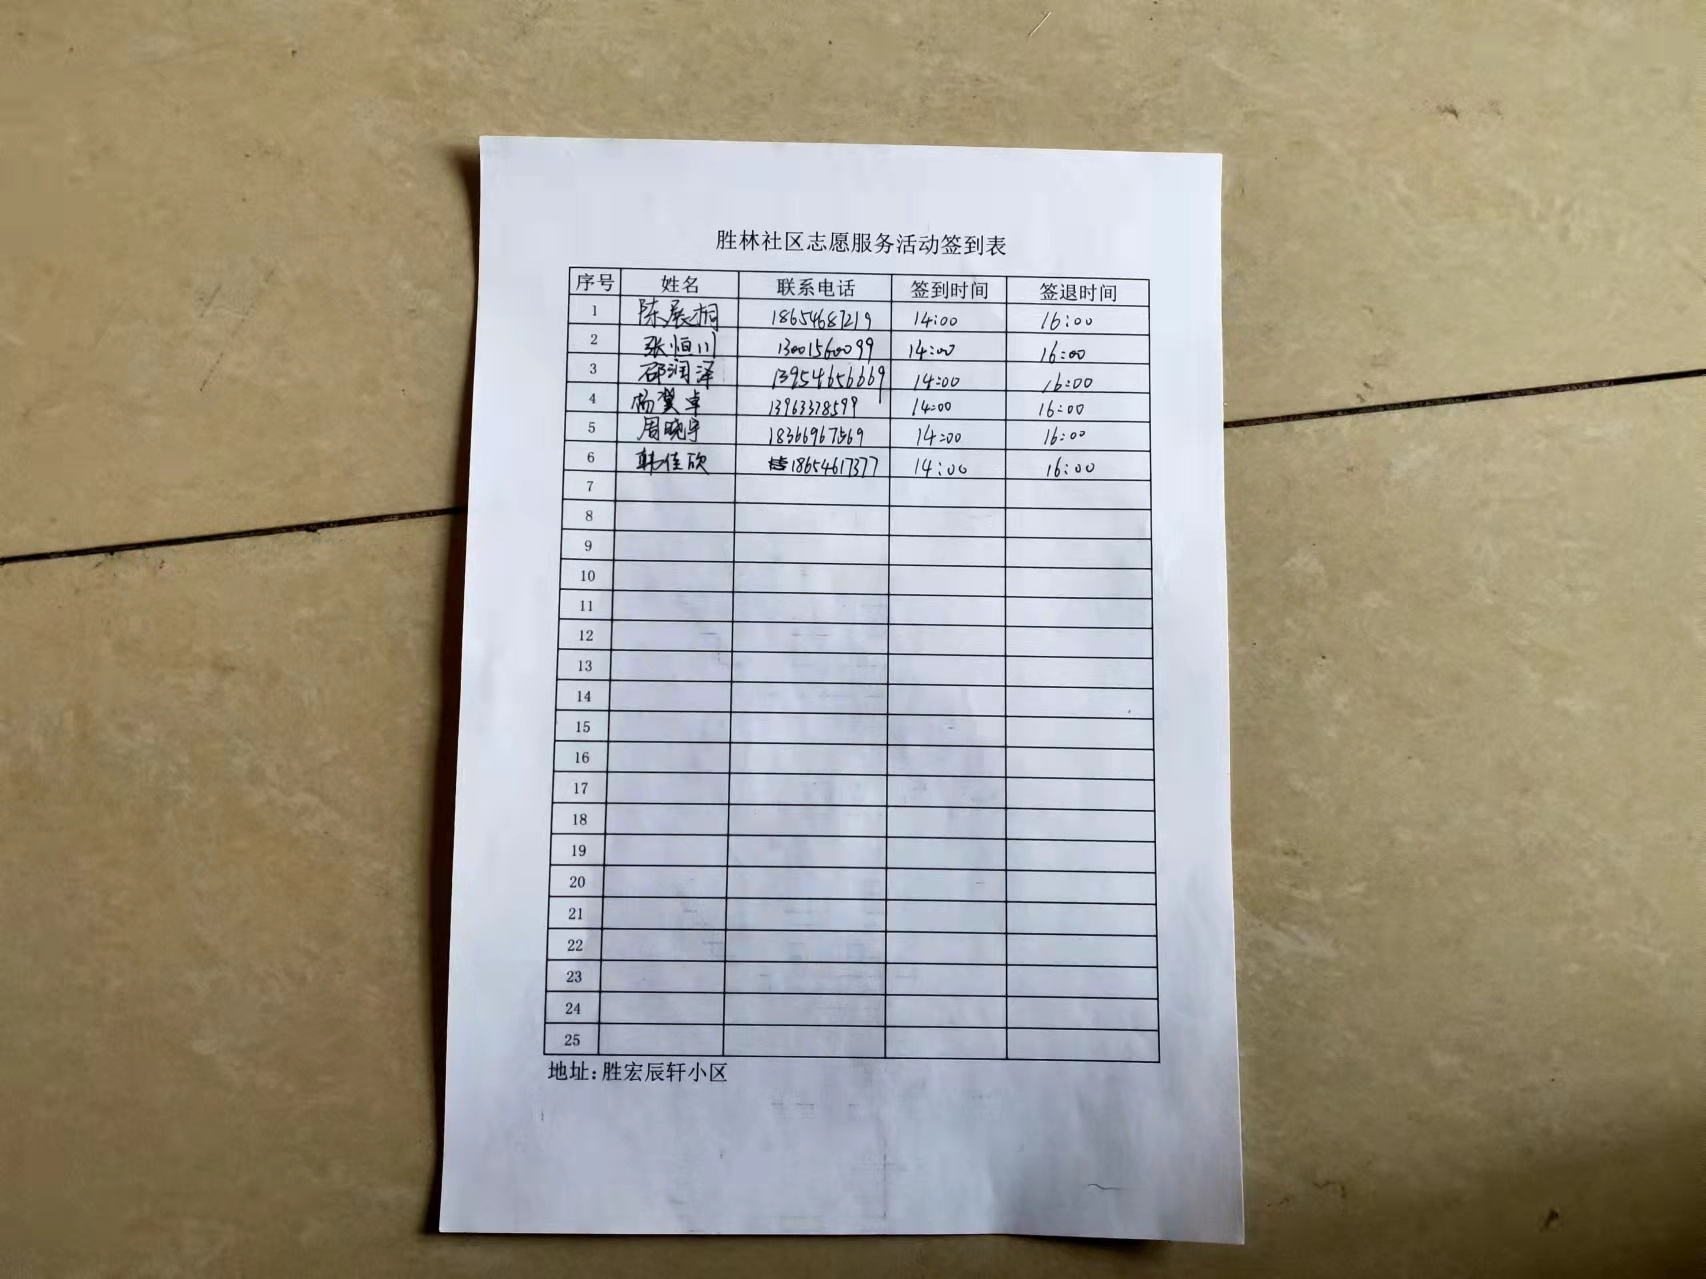 胜林社区志愿服务活动签到表
序号 姓名 联系电话 签到时间 签退时间
1 陈展桐 18654687219 14:00 16:00
2 张恒川 13001560099 14:00 16:00
3 邵润泽 13954656669 14:00 16:00
4 杨冀卓 13963378599 14:00 16:00
5 周晓宇 18366967569 14:00 16:00
6 韩佳欣 18654617377 14:00 16:00
7
8
9
10
11
12
13
14
15
16
17
18
19
20
21
22
23
24
25
地址:胜宏辰轩小区